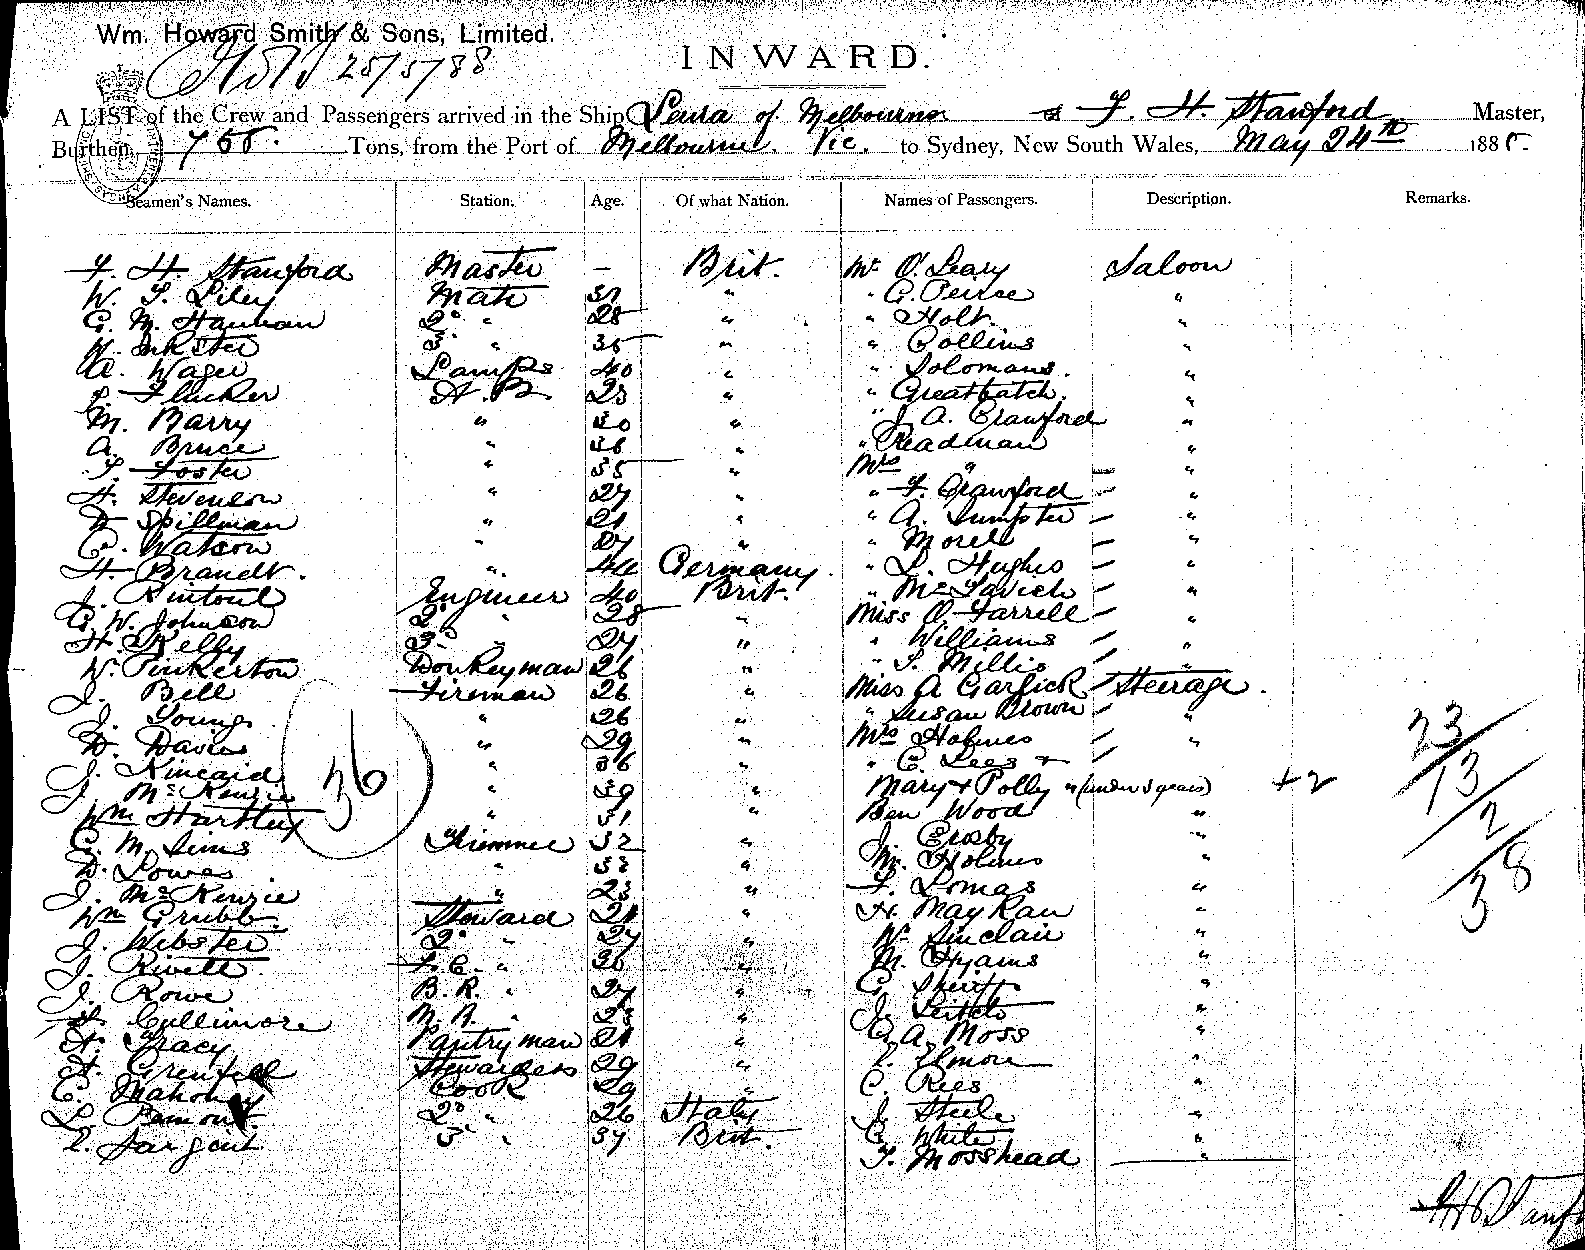 Wm. Howard Smith & Sons, Limited.
25/5/88
INWARD.
A LIST of the Crew and Passengers arrived in the Ship Leura of Melbourne F. H. Stanford Master,
Burthen, 755 Tons, from the Port of Melbourne Vic. to Sydney, New South Wales, May 24th 188
Seamen's Names. Station. Age. Of what Nation. Names of Passengers. Description. Remarks.
F. H. Stanford Master – Brit. Mr O'Leary Saloon
W. Liley Mate 37 " " G. Peirce "
G. M. Hannan 2° " 28 " " Holt "
W. Inkster 3° " 35 " " Collins "
A. Wager Lamps 40 " " Solomans. "
Flucker A. B. 23 " " Greatbatch. "
M. Barry " 30 " " J. A. Crawford "
A. Bruce " 36 " " Readman "
Foster " 35 " Mrs " "
H. Stevenson " 27 " " F. Crawford "
Spillman " 21 " " A. Sumpster "
C. Watson " 27 " " Morel "
H. Brandt. " Germany " L. Hughes "
J. Rintoul Engineer 40 Brit. " McTavish "
G. W. Johnson 2° " 28 " Miss O'Farrell "
H. Kelly 3° " 27 " " Williams "
W. Pinkerton Donkeyman 26 " " Millis "
J. Bell Fireman 26 " Miss A Garlick Steerage.
J. Young " 26 " " Susan Brown "
D. Davies " 29 " Mrs Holmes "
J. Kincaid " 36 " " C. Lees +
J. McKenzie " 39 " Mary & Polly " (under 5 years) +2
Wm Hartley " 31 " Ben Wood "
G. M. Sims Trimmer 32 " J. Crosby "
D. Lowe " 33 " W. Holmes "
J. McKenzie " 23 " F. Lomas "
Wm Grubb Steward 21 " H. May Kan "
J. Webster 2° " 27 " W. Sinclair "
J. Rivett F. C. " 36 " M. Hyams "
J. Rowe B. R. " 27 " G. "
Cullimore M. R. " 23 " J. Leitch "
H. Tracy Pantryman 21 " G. A. Moss "
A. Grenfell Stewardess 29 " E. Elmore "
C. Mahoney Cook 29 " C. Rees "
L. 2° " 26 Italy J. Steele "
E. Sargent 3° " 37 Brit. G. White "
T. Mosshead "
36
23
13
2
38